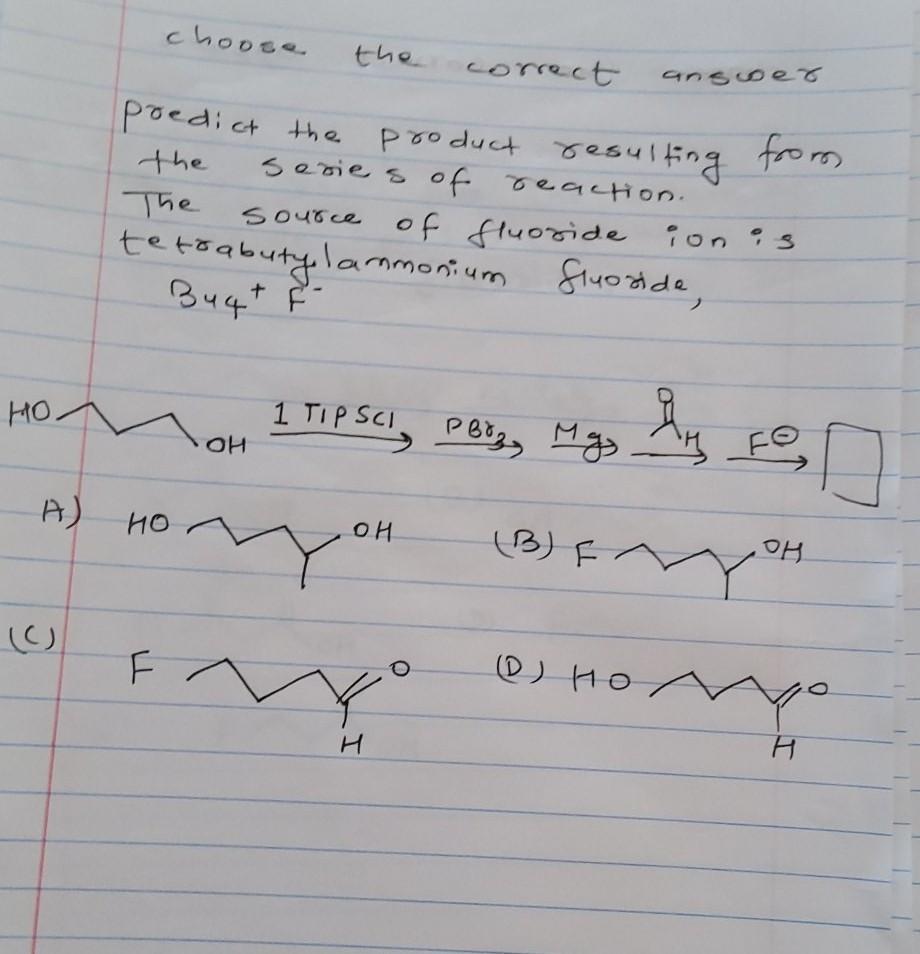 choose the correct answer
predict the product resulting from
the series of reaction.
The source of fluoride ion is
tetrabutylammonium fluoride,
Bu4+ F-
HO OH 1 TIPSCl PBr3 Mg O H F⊖
A) HO OH (B) F OH
(C) F O H (D) HO O H